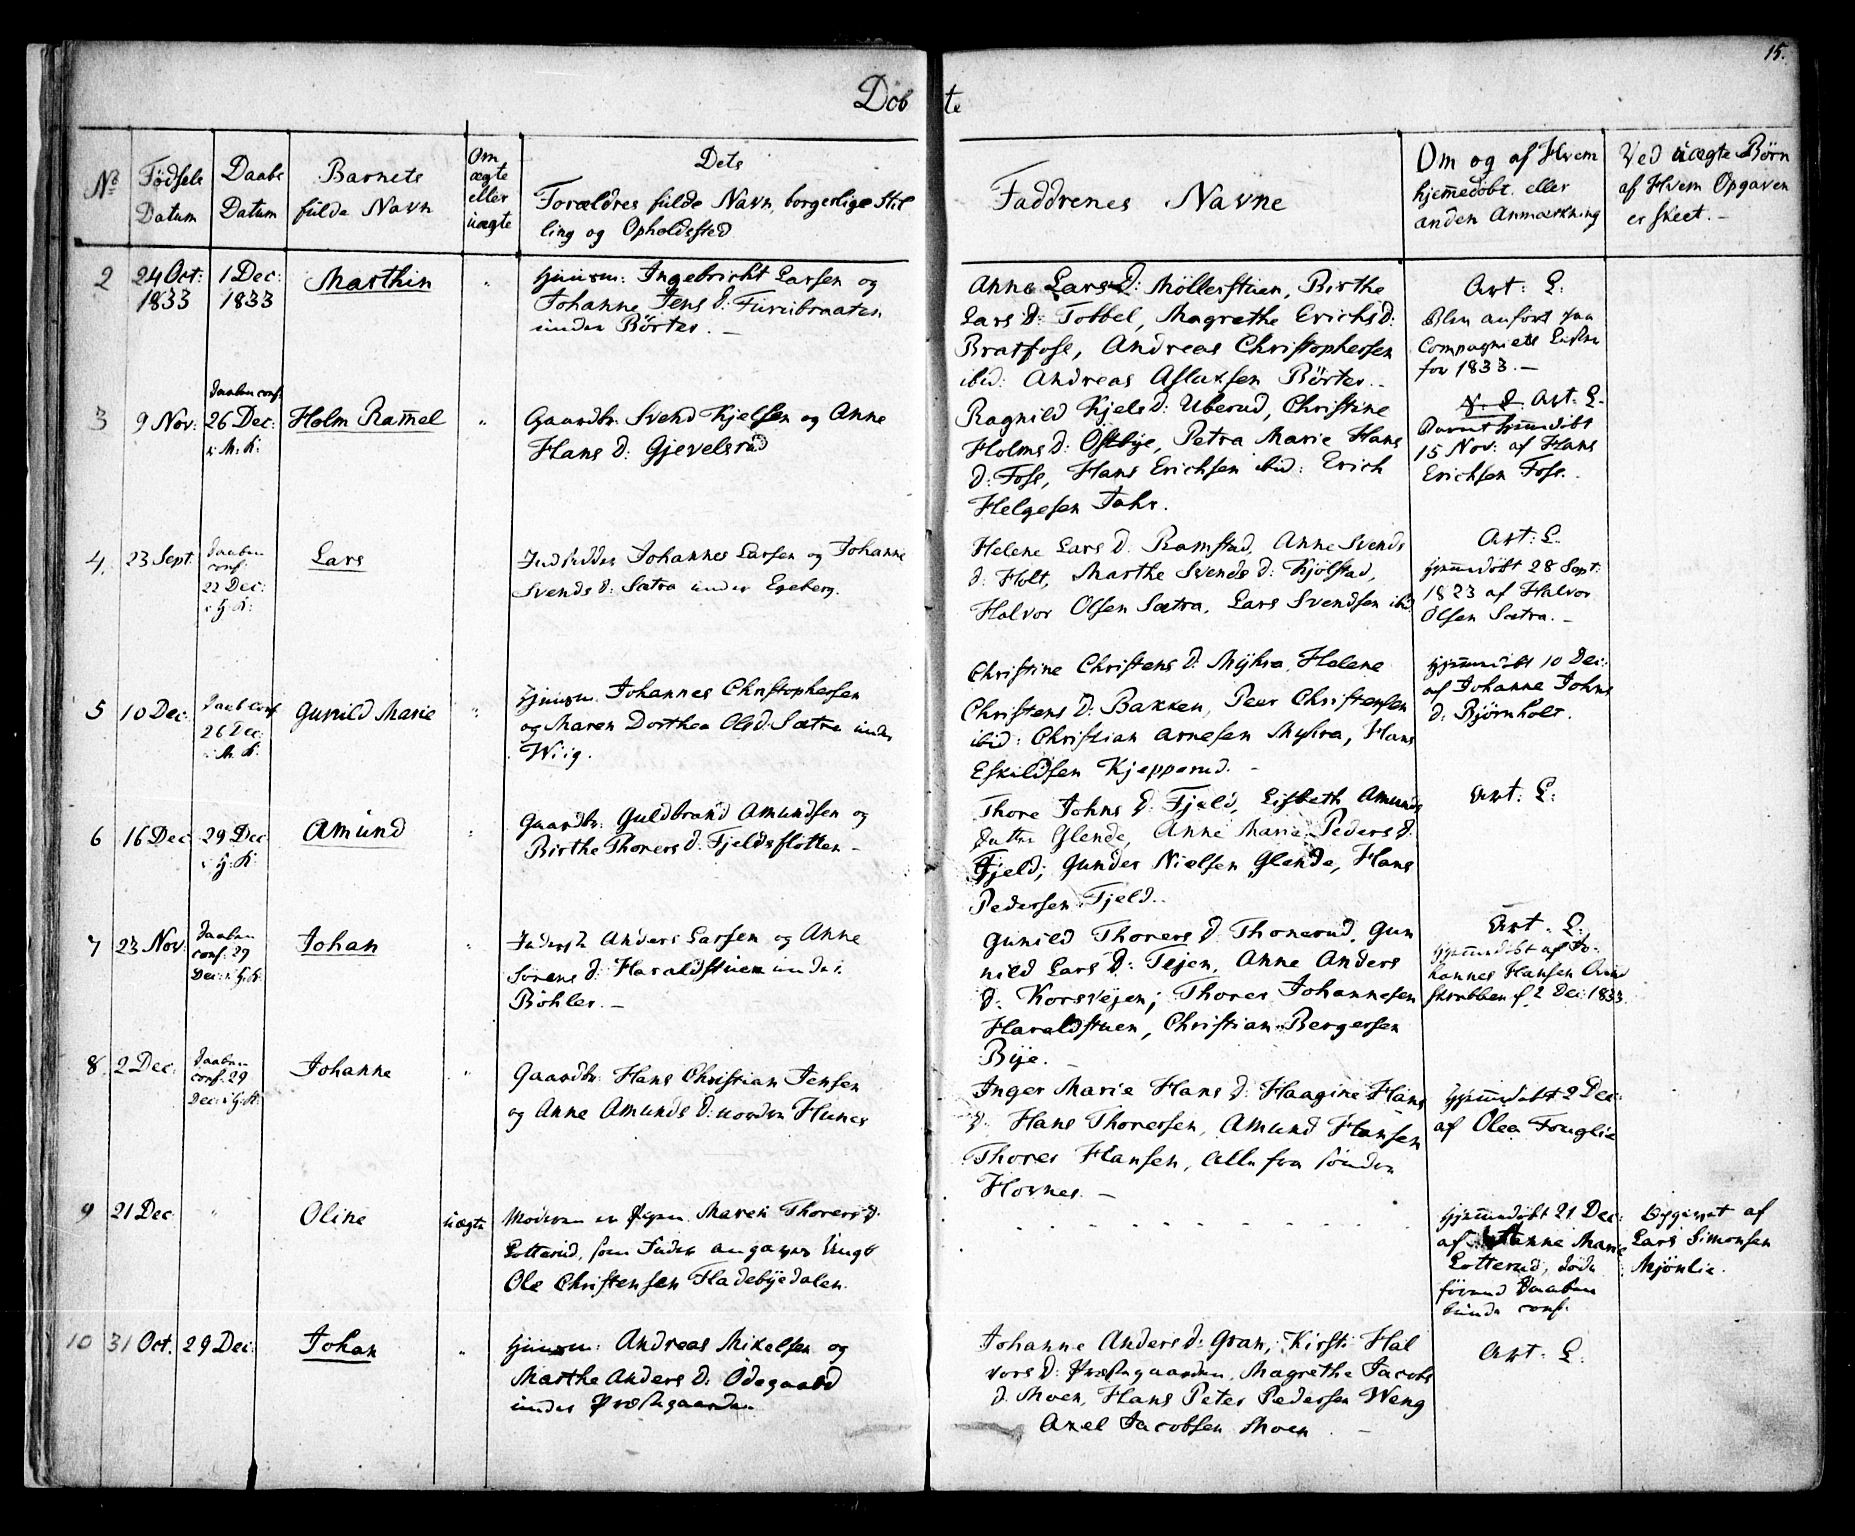 15.
Döbte
No
Födsels
Datum
Daabs
Datum
Barnets
fulde Navn
Om
ægte
eller
uægte
Dets
Forældres fulde Navn, borgerlige Stil
ling og Opholdssted
Faddrenes Navne
Om og af Hvem
hjemedöbt eller
anden Anmærkning
Ved uægte Børn
af Hvem Opgaven
er skeet. -
2
24 Oct:
1833
1 Dec:
1833
Marthin
Huusm: Ingebricht Larsen og
Johanne Jens D: Furubraaten
under Börter. -
Anne Lars D: Möllerstuen, Birthe
Lars D: Tobbel, Magrethe Erichs D:
Bratfoss, Andreas Christophersen
ibid: Andreas Aslaksen Börter. -
Art: L.
Blev anfört paa
Compagniets Liste
for 1833. -
3
9 Nov:
Daaben conf.
26 Dec:
i M. K:
Holm Ramel
Gaardbr: Svend Kjelsen og Anne
Hans D: Gjevelsrud
Ragnild Kjels D: Uberud, Christine
Holms D: Östbye, Petra Marie Hans
D: Foss, Hans Erichsen ibid: Erich
Helgesen Jahr.
Art. L.
Barnet hjemedöbt
15 Nov: af Hans
Erichsen Foss.
4.
23 Sept
Daaben
conf:
22 Dec:
i H: K:
Lars
Indsidder Johannes Larsen og Johanne
Svends D: Sætra under Egeberg.
Helene Lars D. Ramstad, Anne Svends
D: Holt, Marthe Svends D: Kjölstad,
Halvor Olsen Sætra, Lars Svendsen ibid
Art: L.
hjemedöbt 28 Sept:
1823 af Halvor
Olsen Sætra. -
5
10 Dec:
Daab conf
26 Dec:
i M. K:
Gunild Marie
Huusm. Johannes Christophersen
og Maren Dorthea Ols D. Sætra under
Wiig.
Christine Christens D. Myhra, Helene
Christens D: Bakken, Peur Christensen
ibid: Christian Arnesen Myhra, Hans
Eskildsen Kjepperud. -
hjemedöbt 10 Dec:
af Johanne Johns
D: Björnholt.
6
16 Dec
29 Dec
i H. K:
Amund
Gaardbr: Guldbrand Amundsen og
Birthe Thorers D. Fjeldsflotten -
Thore Johns D. Fjeld, Lisbeth Amunds
Datter Glende, Anne Marie Peders D.
Fjeld, Gunder Nielsen Glende, Hans
Pedersen Fjeld.
Art: L:
7
23 Nov:
Daaben
conf: 29
Dec: i H. K:
Johan
Inderst Anders Larsen og Anne
Sörens D: Haraldstuen under
Böhler. -
Gunild Thorers D. Thonerud, Gun
nild Lars D: Tejen, Anne Anders
D. Korsvejen, Thorer Johannesen
Haraldstuen, Christian Bergersen
Bye. -
Art. L.
hjemmedöbt af Jo-
hannes Hansen
2 Dec: 1833.
8.
2 Dec:
Daaben
conf: 29
Dec: i H: K:
Johanne
Gaardbr: Hans Christian Jensen
og Anne Amunds D: nordre Hunes
Inger Marie Hans D: Haagine Hans
D. Hans Thoresen, Amund Hansen
Thorer Hansen, alle fra söndre
Hovnes. -
hjemedöbt 2 Dec:
af Olea Fouglie
9
21 Dec
Oline
uægte
Moderen er Pigen Maren Thorers D.
Lotterud, som Fader angaves Ungk
Ole Christensen Fladebyedalen.
hjemmedöbt 21 Dec:
af Anne Marie
Lotterud, döde
förend Daaben
kunde conf:
Opgivet af
Lars Simonsen
Mjönlie.
10
31 Oct.
29 Dec:
Johan
Huusm: Andreas Mikelsen og
Marthe Anders D: Ödegaard
under Præstegaarden
Johanne Anders D: Gran, Kirsti Hal
vors D: Præstegaarden, Magrethe Jacobs
D. Moen, Hans Peter Pedersen Weng
Axel Jacobsen Moen -
Art. L: